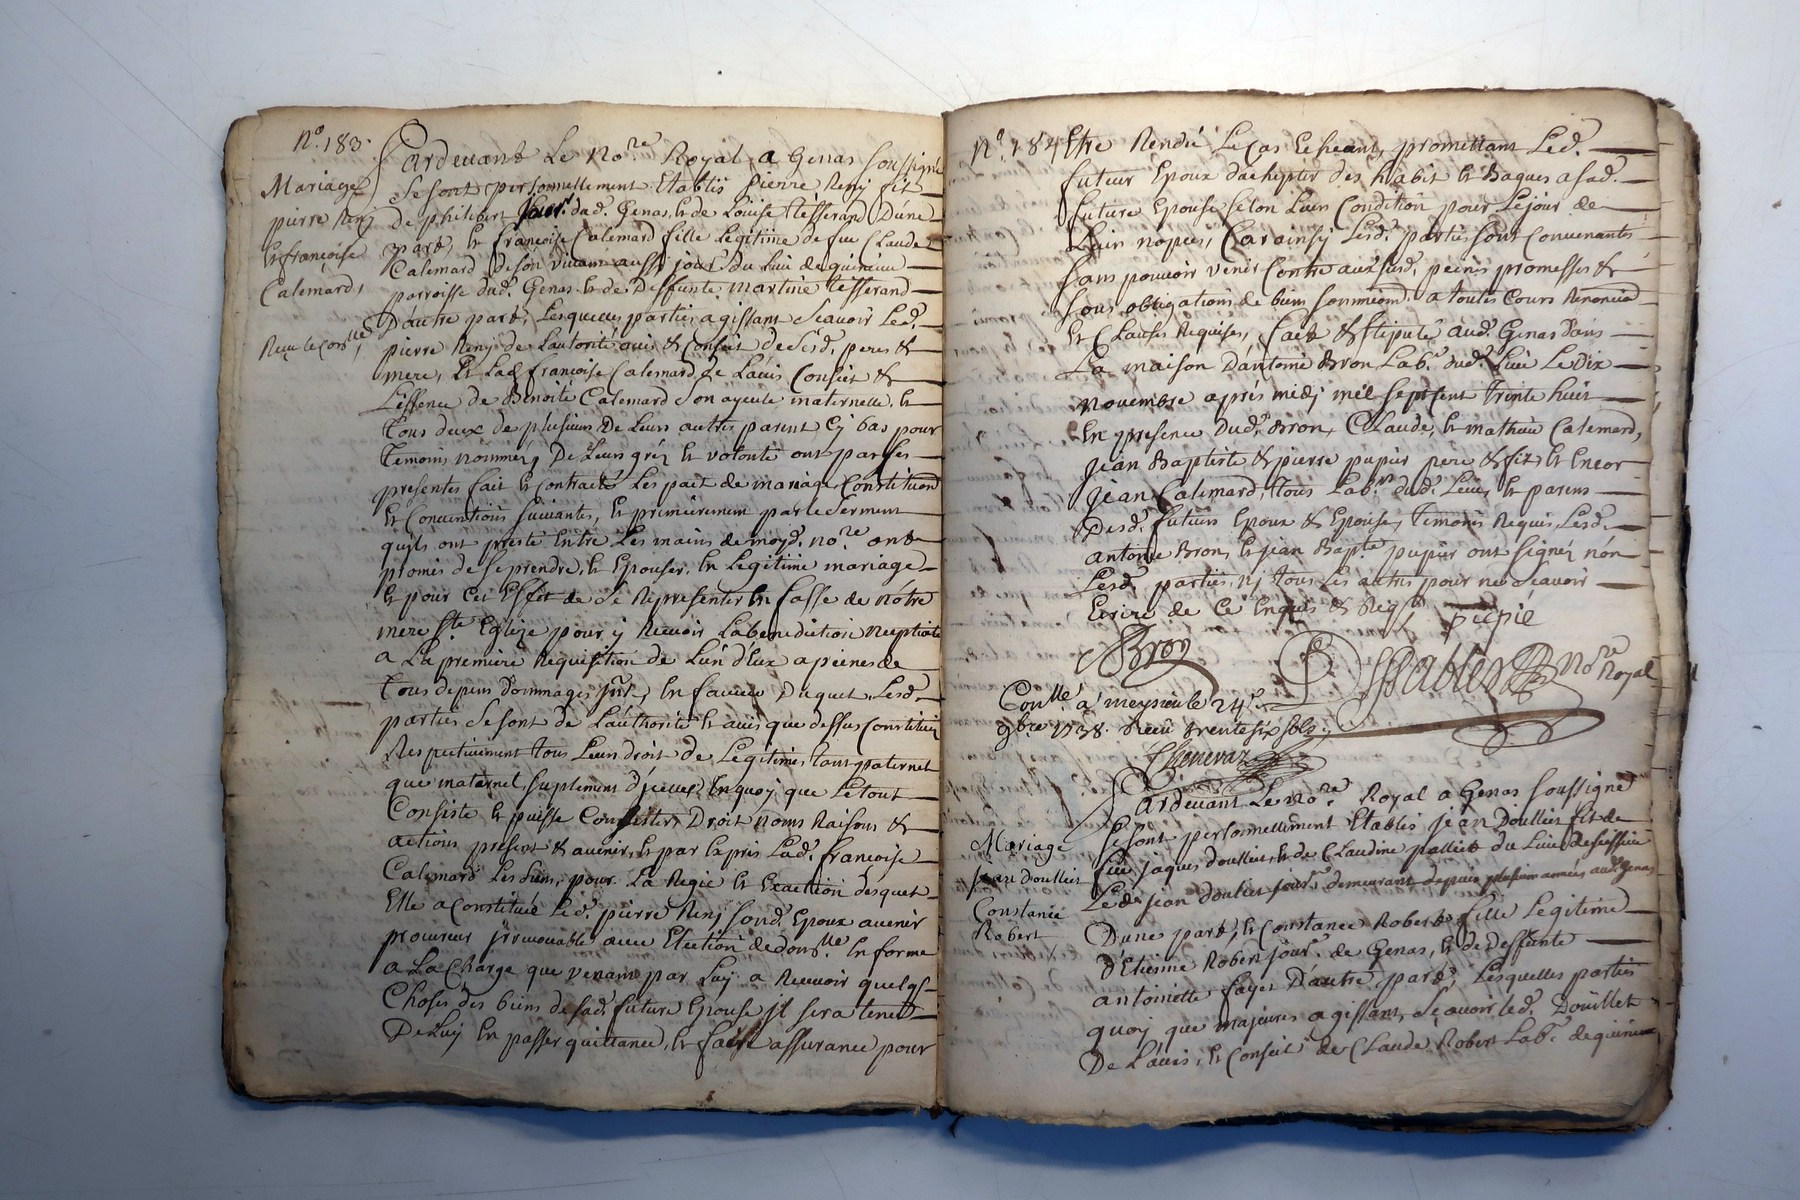 N.° 183.
Mariage
pierre Renj
Et françoise
Calemard,
Pardeuant Le No.re Royal a Genas soussigné
se sont personnellement Etablis pierre Renj fit
de philibert jour.r dud. Genas, Et de Louise Tesserand D'une
part, Et françoise Calemard fille Legitime de feu Claude
Calemard de son viuant aussy jour.r du Lieu de quincieu
parroisse dud. Genas Et de Deffunte martine Tesserand
D'autre part, Lesquelles parties agissant Scauoir Led.
pierre Renj de L'autorité auis & Conseit de Sesd. peres &
mere, Et Lad. francoise Calemard de L'auis Conseit &
de Benoite Calemard son ayeule maternelle, Et
tous deux de plusieurs De Leurs autres parent Cy bas pour
temoins nommez, De Leurs grés Et volonté ont par Ses
presentes fait Et Contracté Les pait de mariage Constitution
Et Conuentions suiuantes, Et premierement par le serment
quils ont presté Entre Les mains de moyd. no.re ont
promis de se prendre, Et Epouser, En Legitime mariage
Et pour Cet Effet de se Representer En fasse de nôtre
mere S.te Eglize pour y Receuoir La benediction Neuptiale
a La premiere Requisition de L'un d'Eux a peines de
tous depens dommages En faueur Duquel Lesd.
parties se sont de L'authorité Et auis que dessus Constitué
Respectiuement tous Leurs droits de Legitimes tant paternel
que maternel, suplement d'jcelles, En quoy que Le tout
Consiste Et puisse Consister, Droit noms Raisons &
actions present & auenir, Et par Expris Lad. françoise
Calemard Les siens, pour La Regie Et Exaction desquet
Elle a Constitué Led. pierre Renj sond. Epoux auenir
procureur jrreuocable auec Election de dom.lle En forme
a La Charge que venant par Luy a Receuoir quelqs
Choses des biens de sad. future Epouse jl sera tenu
De Luy En passer quittance, Et faire assurance pour
N.° 184
Estre Rendû Le Cas Echeant, promettant Led.
futeur Epoux d'achepter des habit Et Bagues a sad.
future Epouse selon Leur Condition pour Le jour de
Leur nopces, Car ainsy Lesd. parties sont Conuenantés
sans pouuoir venir Contre aux susd. peines promesses &
sous obligations de biens soumissions a toutes Cours Renonciā
Et Clauses Requises, fait & stipulé aud. Genas dans
La maison D'antoine Bron Lab.r dud. Lieu Le Dix
nouembre aprés midj mil sept sent trente huit
En presence Dud. Bron, Claude, Et mathieu Calemard,
jean Baptiste & pierre pupier pere & fit, Et Encor
jean Calemard, tous Lab.rs dud. Lieu, Et parens
Desd. futeurs Epoux & Epouse, temoins Requis Lesd.
antoine Bron, Et jean Bap.te pupier ont signéz nón
Lesd. parties, nj tous Les autres pour ne scauoir
Ecrire de Ce Enquis & Req.s
pupié
Bron
No.re Royal
Con.llé à meysieu le 24.e
9bre 1738. Receû trente six sols
Mariage
jean Doullet
Constance
Robert
Pardeuant Le No.re Royal a Genas soussigné
se sont personnellement Etablis jean Doullet fit de
feu jaques doullet, Et de Claudine palliet du Lieu
Led. jean doulliet jour.r demeurant depuis plusieurs années aud. Genas
D'une part, Et Constance Robert fille Legitime
d'Etienne Robert jour.r de Genas, Et de Deffunte
antoinette fayet D'autre part, Lesquelles parties
quoy que majeures agissant, Scauoir led. Doullet
De L'auis, Et Conseit de Claude Robert Lab.r de quincieu